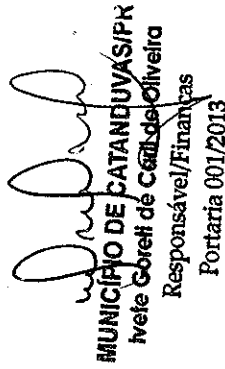 MUNICÍPIO DE CATANDUVAS/PR
Ivete Goreti de Oliveira
Responsável/Finanças
Portaria 001/2013